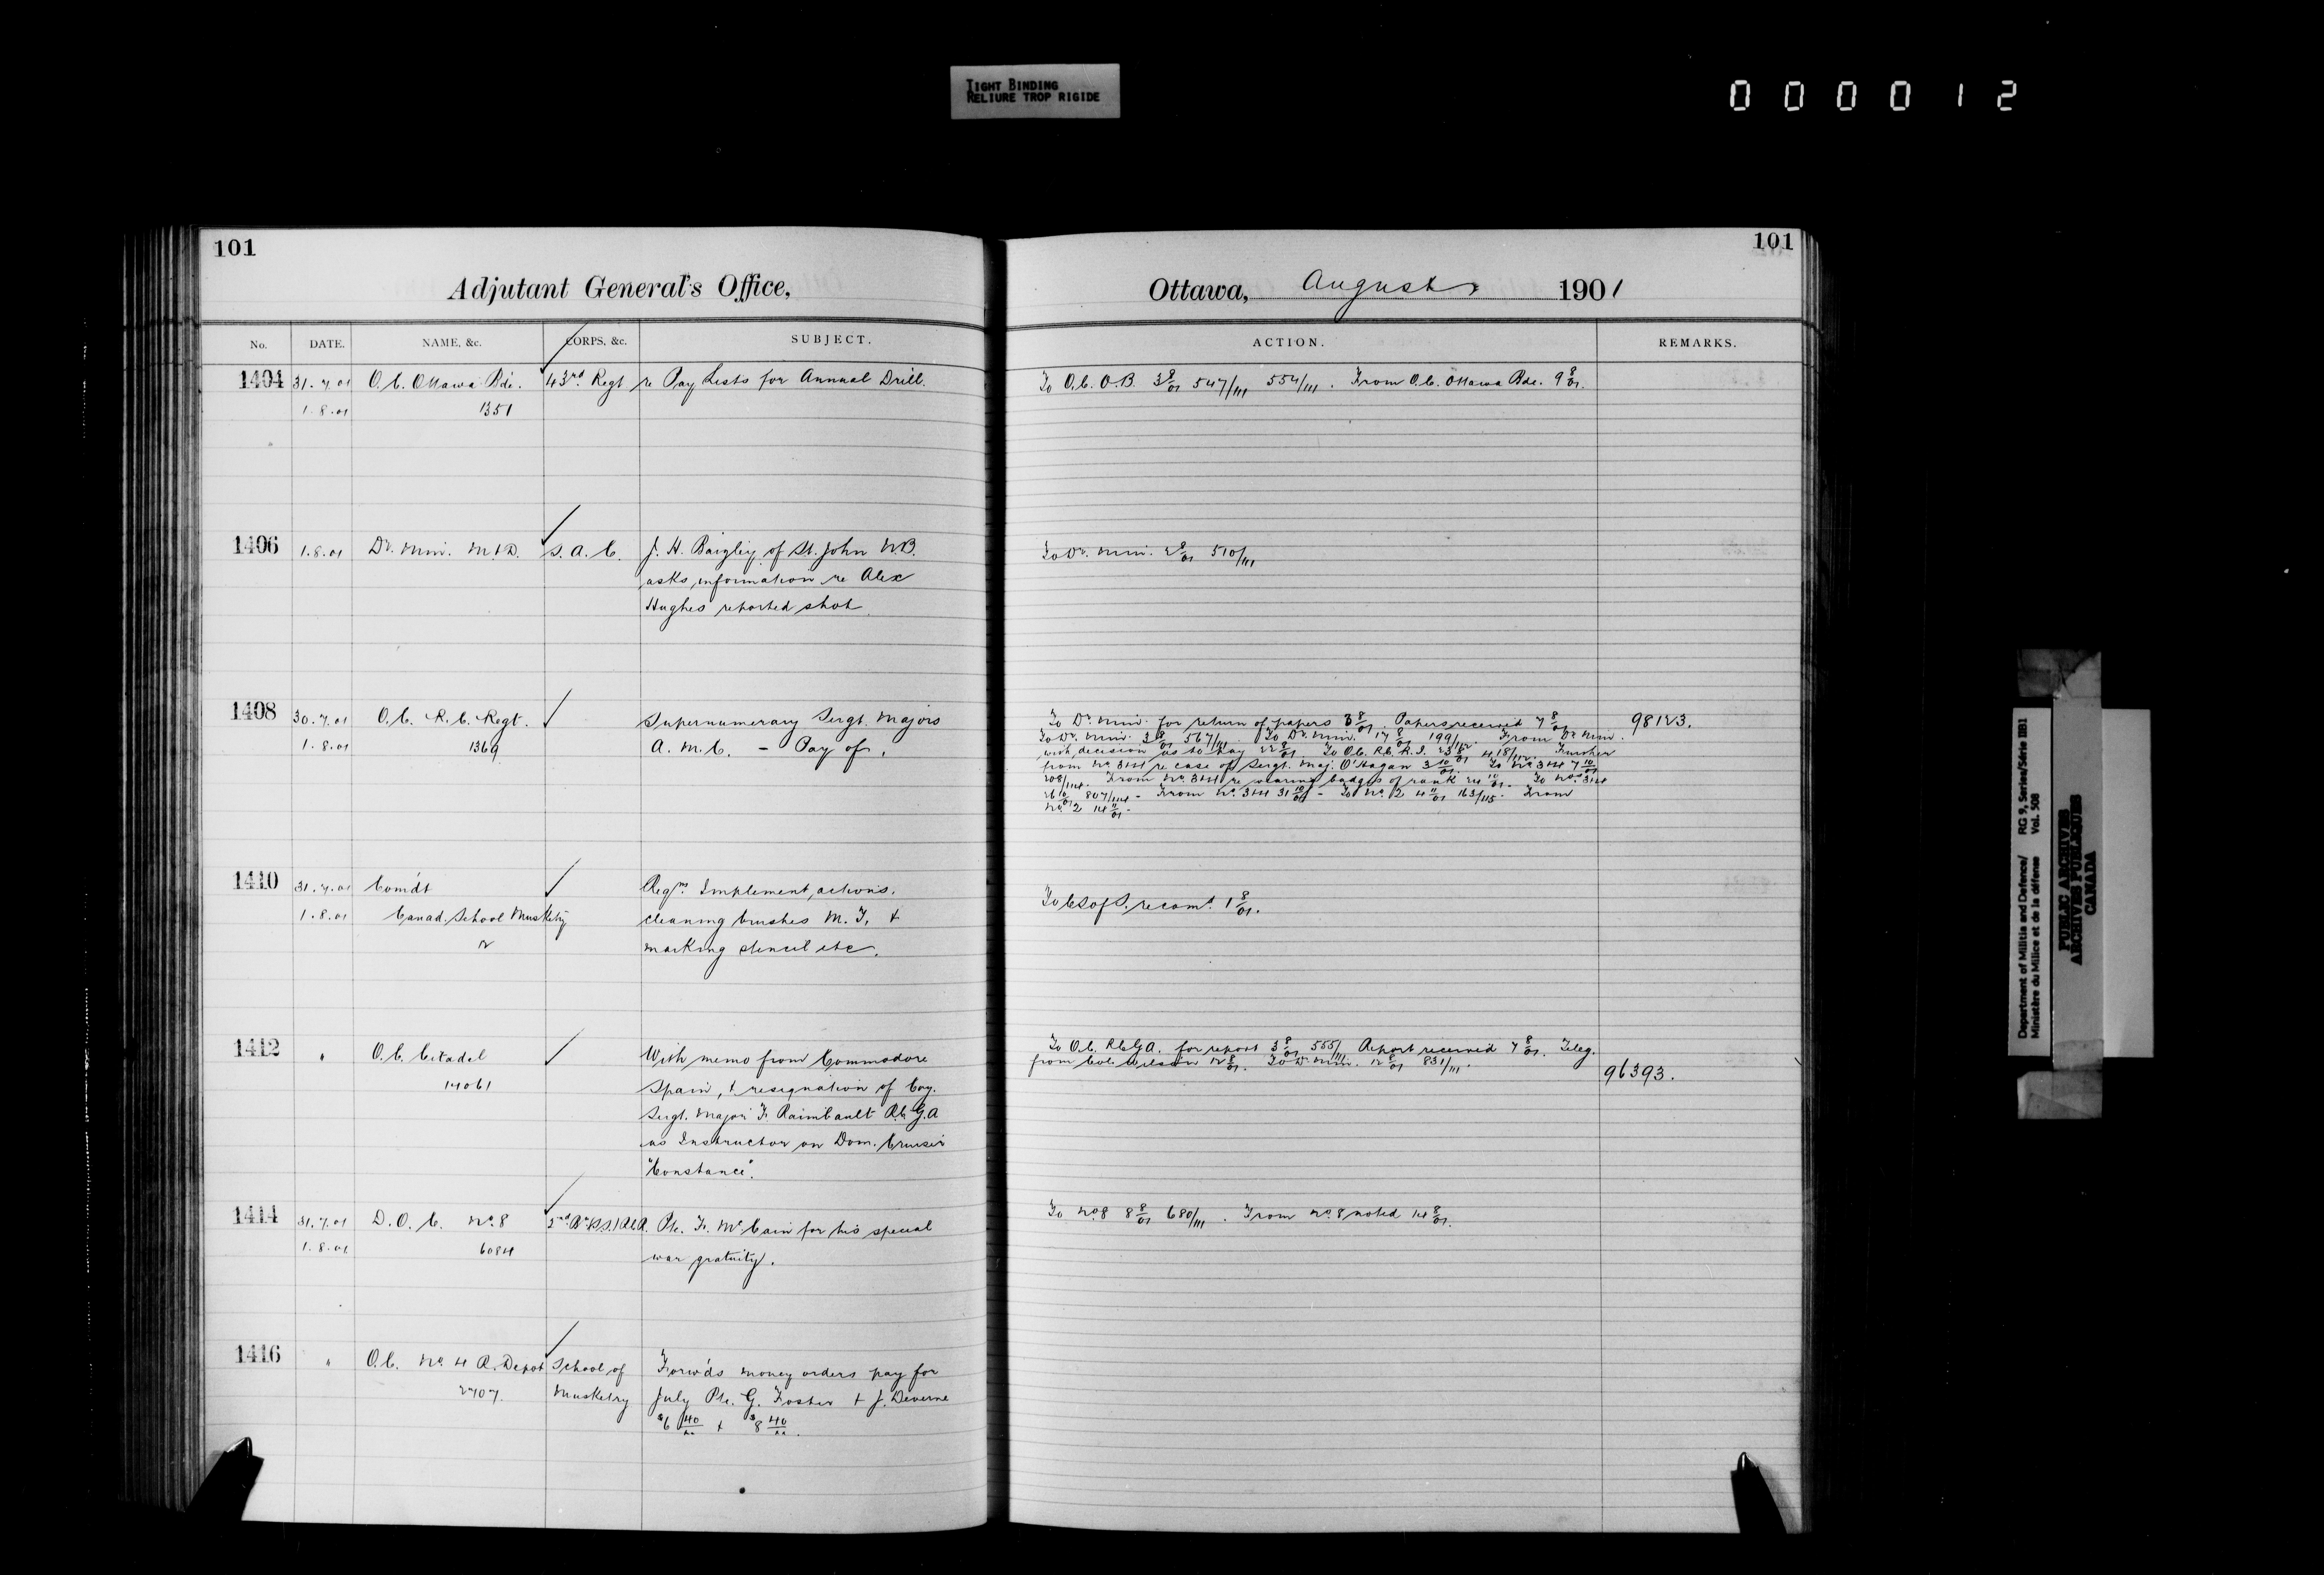 TIGHT BINDING
RELIURE TROP RIGIDE
000012
101
Adjutant General's Office,
No. DATE. NAME, &c. CORPS, &c. SUBJECT.
1404 31.7.01 O.C. Ottawa Bde. 43rd Regt re Pay Lists for Annual Drill.
1.8.01 1351
1406 1.8.01 Dr. Min. M&D. S.A.C. J. H. Baigley of St. John N.B.
asks information re Alex
Hughes reported shot.
1408 30.7.01 O.C. R.C. Regt. Supernumerary Sergt. Majors
1.8.01 1369 A.M.C. - Pay of.
1410 31.7.01 Com'dt Reqns. Implement, actions.
1.8.01 Canad. School Musketry cleaning brushes M. F. &
2 marking stencil etc.
1412 " O.C. Citadel With memo from Commodore
14061 Spain, & resignation of Coy.
Sergt. Major F. Raimbault R.C.G.A
as Instructor on Dom. Cruiser
"Constance".
1414 31.7.01 D.O.C. No. 8 2nd Bn Pte. F. McCain for his special
1.8.01 6084 war gratuity.
1416 " O.C. No. 4 R. Depot School of Forw'ds money orders pay for
2707. Musketry July Pte. G. Foster & J. Deverne
$6 40/xx & $8 40/xx.
101
Ottawa, August 1901
ACTION. REMARKS.
To O.C. O.B. 3 8/01 547/111 554/111. From O.C. Ottawa Bde. 9 8/01.
To Dr. Min. 2 8/01 510/111
To Dr. Min. for return of papers 3 8/01. Papers received 7 8/01. 98123.
To Dr. Min. 3 8/01 567/111. To Dr. Min. 17 8/01 199/112. From Dr Min.
with decision as to pay 22 8/01. To O.C. R.C.R.I. 23 8/01 418/112. Further
from No. 3&4 re case of Sergt. Maj. O'Hagan 3 10/01. To No. 3&4 7 10/01
208/114. From No. 3&4 re wearing badges of rank 24 10/01. To No. 3&4
26 10/01 807/114 - From No. 3&4 31 10/01 - To No. 2 4 11/01 163/115. From
No. 2 14 11/01.
To C S of S. recomd. 1 8/01.
To O.C. R.C.G.A. for report 3 8/01 555/111 Report received 7 8/01. Teleg.
from Col. Wilson 12 8/01. To Dr. Min. 12 8/01 831/111. 96393.
To No. 8 8 8/01 680/111. From No. 8 noted 14 8/01.
Department of Militia and Defence/ RG 9, Series/Série IIB1
Ministère du Milice et de la défense Vol. 508
PUBLIC ARCHIVES
ARCHIVES PUBLIQUES
CANADA